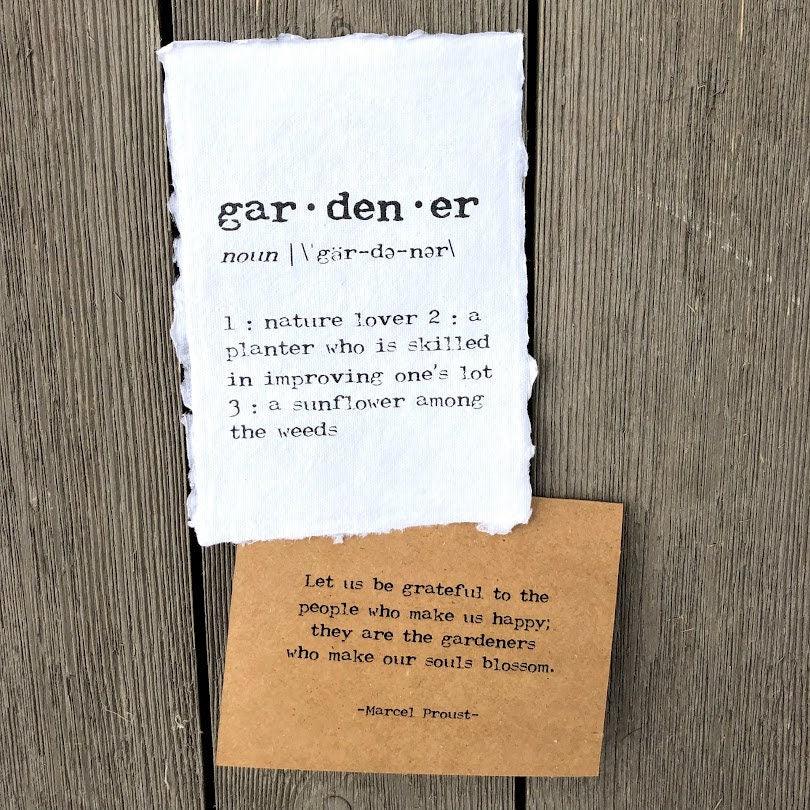 gar·den·er
noun | \'gär-də-nər\
1 : nature lover 2 : a
planter who is skilled
in improving one's lot
3 : a sunflower among
the weeds
Let us be grateful to the
people who make us happy;
they are the gardeners
who make our souls blossom.
-Marcel Proust-